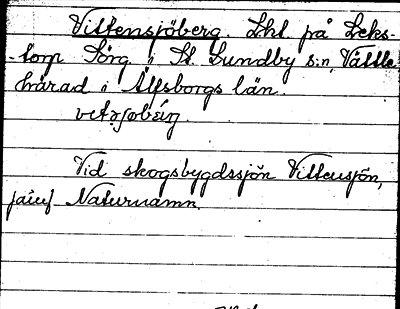 Vittensjöberg. Lht på Leks-
torp Sörg. i St. Lundby s:n, Vättle
härad i Älfsborgs län.
Vid skogsbygdssjön Vittensjön,
Naturnamn.